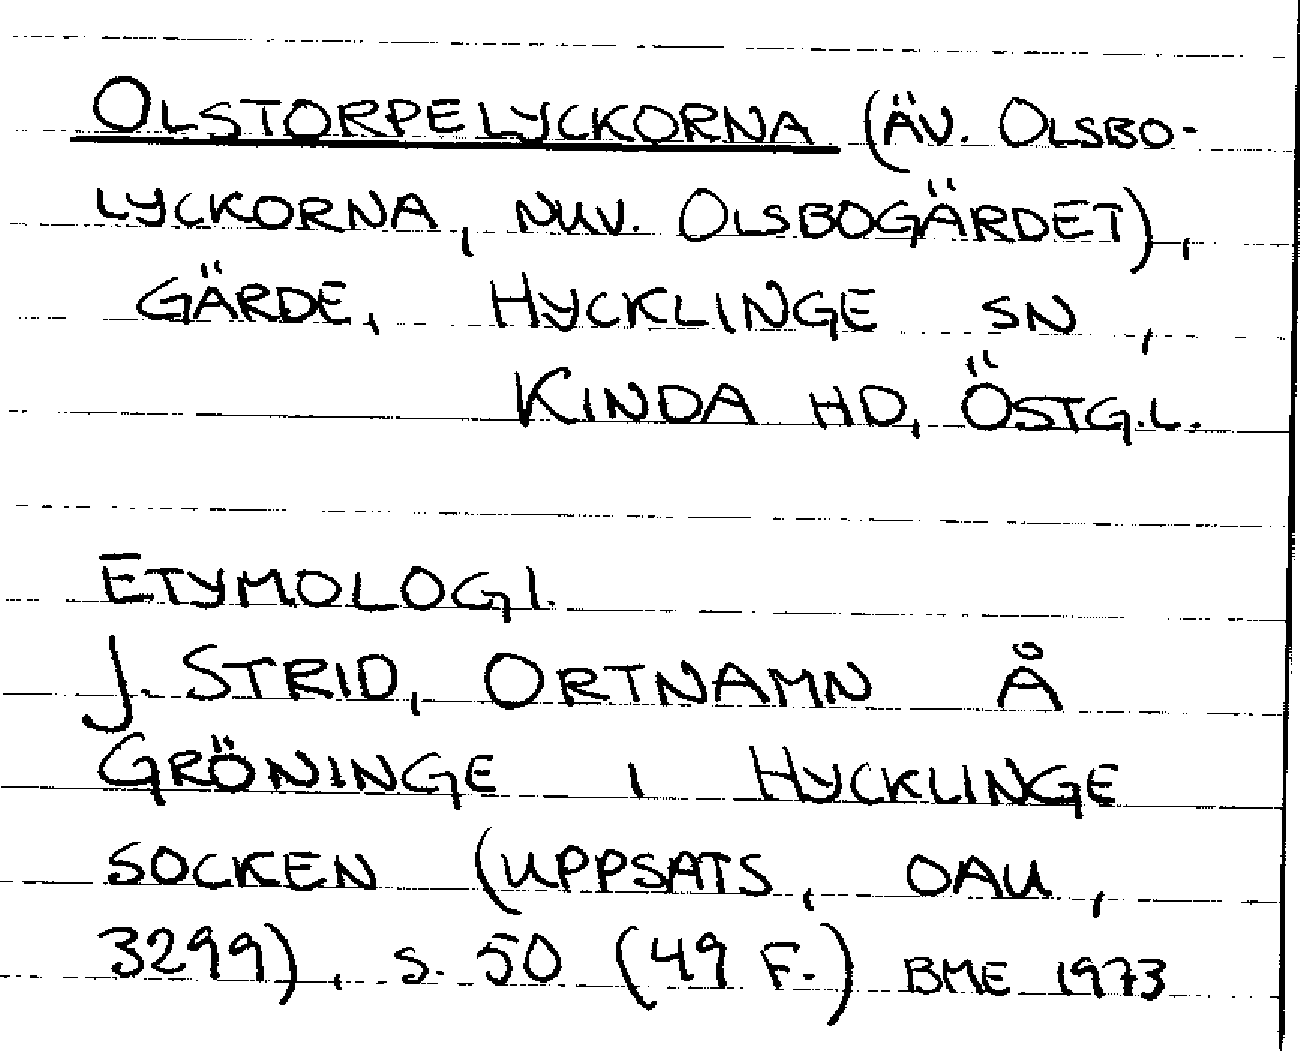 OLSTORPELYCKORNA (ÄV. OLSBO-
LYCKORNA, NUV. OLSBOGÄRDET),
GÄRDE, HYCKLINGE SN,
KINDA HD, ÖSTG.L.
ETYMOLOGI.
J. STRID, ORTNAMN Å
GRÖNINGE I HYCKLINGE
SOCKEN (UPPSATS, OAU,
3299), S. 50 (49 F.) BME 1973